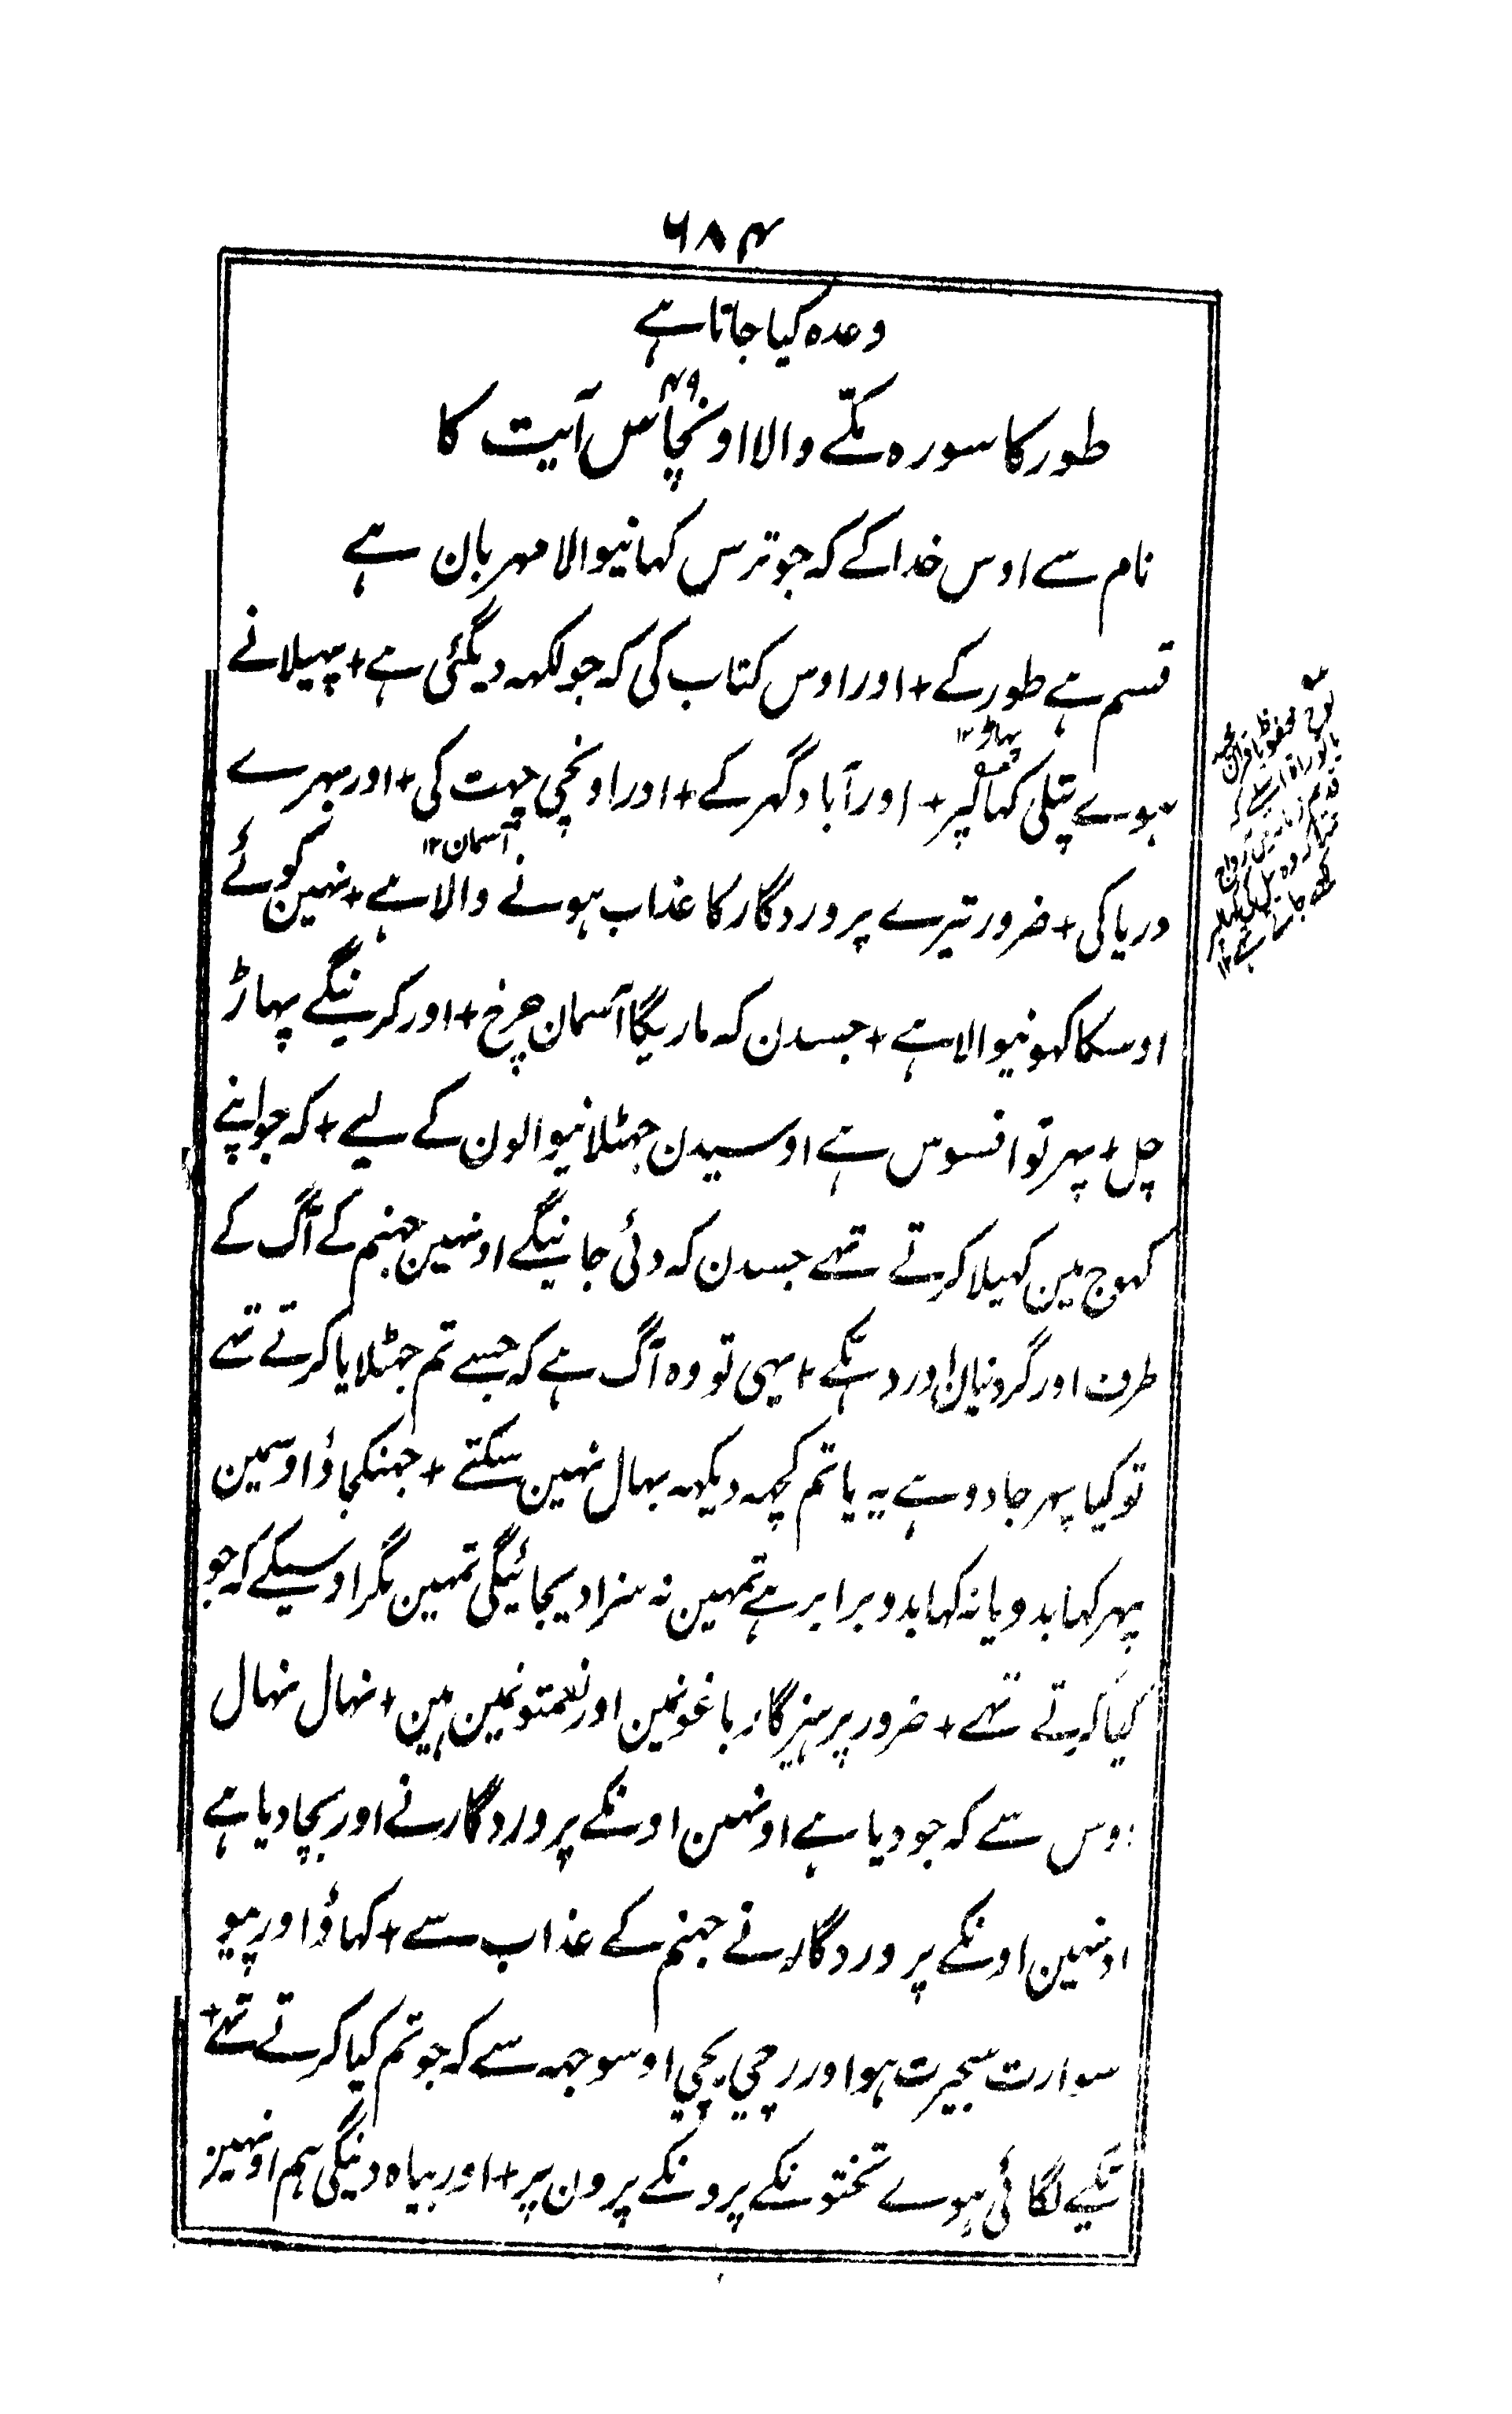 ۶۸۴
وعدہ کیا جاتا ہے
۴۹
طور کا سورہ مکّے والا اونچاس آیت کا
نام سے اوس خدا کے کہ جو ترس کہانیوالا مہربان ہے
قسم ہے طور کے + اور اوس کتاب کی کہ جو لکہہ دیگئی ہے + پہیلانے
پہاڑ ۱۲
ہوے پتلی کہال پر + اور آباد گہر کے + اور اونچی چہت کی + اور بہرے
آسمان ۱۲
دریا کی + ضرور تیرے پروردگار کا عذاب ہونے والا ہے + نہین کوئے
اوسکا کہونیوالا ہے + جسدن کہ ماریگا آسمان چرخ + اور کرینگے پہاڑ
چل + پہر تو افسوس ہے اوسیدن جہٹلانیوالون کے لیے + کہ جو اپنے
کہوج مین کہیلا کرتے تہے جسدن کہ دئی جاینگے اونہین جہنم کے آگ کے
طرف اور گردنیان اور دہکے + یہی تو وہ آگ ہے کہ جسے تم جہٹلایا کرتے تہے
تو کیا پہر جادو ہے یہ یا تم کچہہ دیکہہ بہال نہین سکتے + جہنکجاؤ اوسمین
پہر کہابدو یا نہ کہابدو برابر ہے تمہین نہ سزا دیجائیگی تمہین مگر اوسیکے کہ جو
کیا کرتے تہے + ضرور پرہیزگار باغونمین اور نعمتونمین ہین + نہال نہال
اوس سے کہ جو دیا ہے اونہین اونکے پروردگار نے اور بچا دیا ہے
اونہین اونکے پروردگار نے جہنم کے عذاب سے + کہاؤ اور پیو
سوارت سجیرت ہو اور رچی پچی اوسوجہہ سے کہ جو تم کیا کرتے تہے +
تکیے لگائی ہوے تختونکے پرونکے پرون پر + اور بیاہ دینگی ہم اونہین
لوح محفوظ یا قرآن مجید